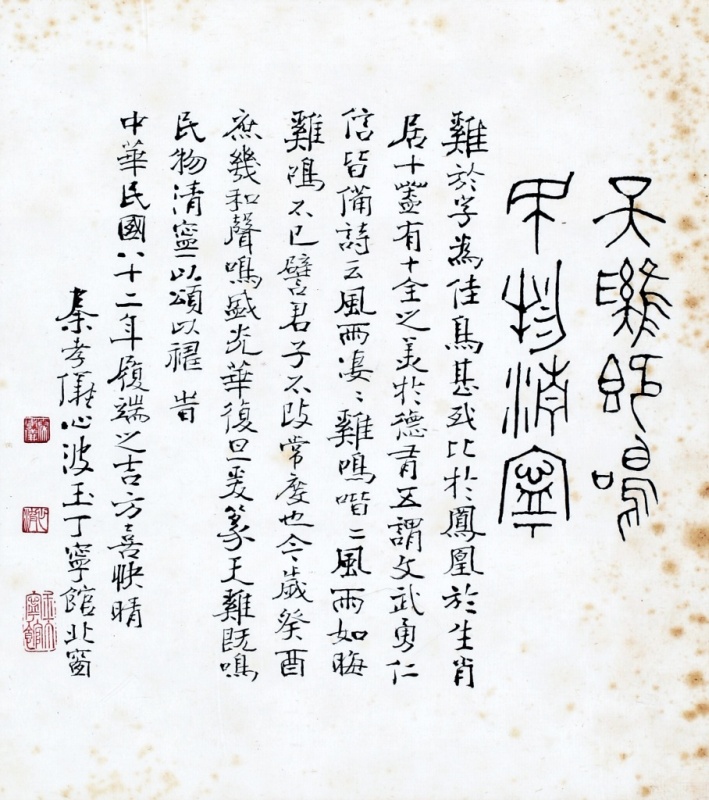 天雞既鳴
民物清寧
雞於字為佳鳥甚或比於鳳凰於生肖
居十蓋有十全之美於德有五謂文武勇仁
信皆備詩云風雨淒〻雞鳴喈〻風雨如晦
雞鳴不已譬君子不改常度也今歲癸酉
庶幾和聲鳴盛光華復旦爰篆天雞既鳴
民物清寧以頌以禱 旹
中華民國八十二年履端之吉方喜快晴
秦孝儀心波玉丁寧館北窗
玉丁寧館